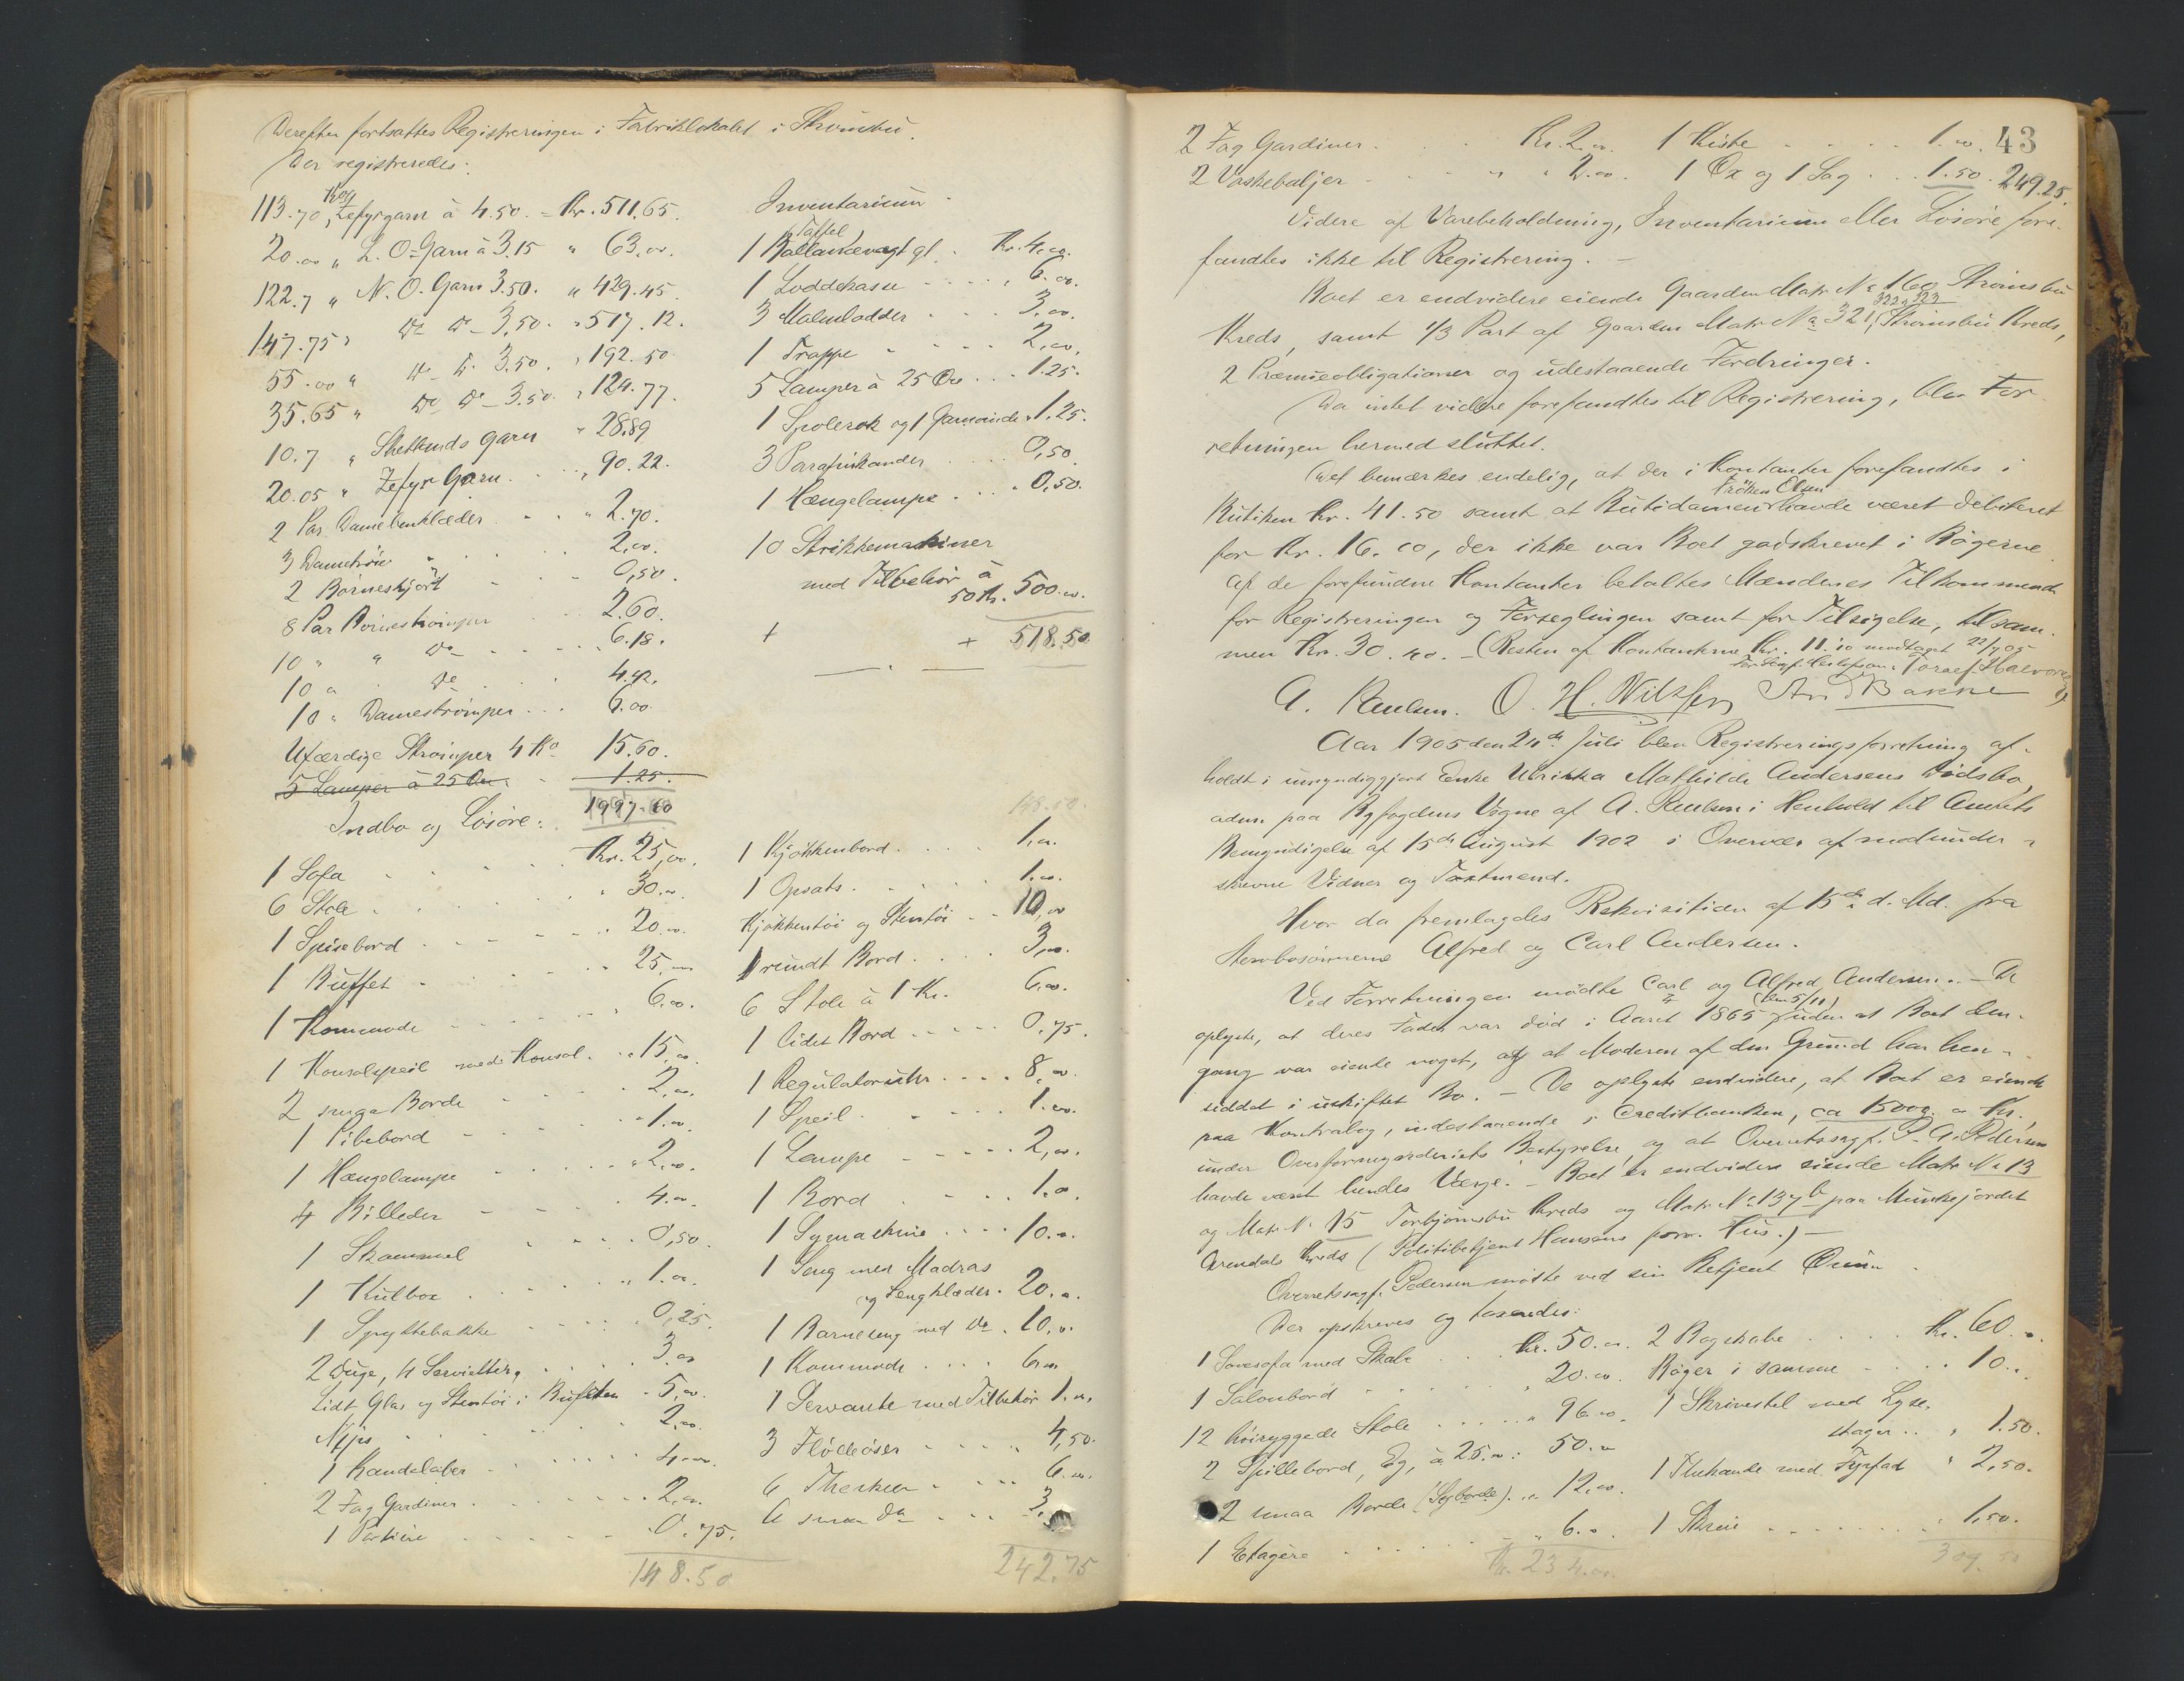 Derefter fortsattes Registreringen i Fabriklokalet i Strømsbu.
Der registreredes:
113.70 Kg Zefyrgarn à 4.50. = Kr. 511.65.
20.00 „ L. O-Garn à 3.15 „ 63.00.
122.7 „ N. O. Garn 3.50. „ 429.45.
147.75 „ Do Do - 3.50. „ 517.12.
55.00 „ Do - Do 3.50. „ 192.50
35.65 „ Do Do - 3.50. „ 124.77.
10.7 „ Shetlands Garn „ 28.89
20.05 „ Zefyr Garn . . . „ 90.22.
2 Par Damebenklæder . . „ 2.70.
3 Dametrøier . . . 2.00.
2 Børneskjørt . . 0,50.
8 Par Børnestrømper . . 2.60.
10 „ „ Do . . . . 6.18.
10 „ „ Do . . . 4.92.
10 „ Damestrømper . . . 6.00.
Ufærdige Strømper 4 Ko 15.60.
5 Lamper à 25 Øre. . 1.25.
1997.60
Inventarium.
1 Taffel Ballancevægt gl. . Kr. 4.00.
1 Loddekasse . . . . „ 6.00.
3 Malmlodder . . . 3.00.
1 Trappe . . . . 2.00.
5 Lamper à 25 Øre . . . 1.25.
1 Spolerok og 1 Garnvinde „ 1.25.
3 Parafinkander . . . . 0,50.
1 Hængelampe . . . . 0.50.
10 Strikkemaskiner
med Tilbehør à
50 Kr. 500.00.
+ + 518.50
Indbo og Løsøre:
1 Sofa . . . . . Kr. 25,00.
6 Stole . . . . . „ 30.00
1 Spisebord . . . . . „ 20.00.
1 Buffet . . . . . „ 25,00
1 Kommode . . . . . „ 6.00.
1 Konsolspeil med Konsol . „ 15,00.
2 smaa Borde . . . . 2,00.
1 Pibebord . . . . „ 1.00.
1 Hængelampe . . . . „ 2,00.
4 Billeder . . . . . 4.00
1 Skammel . . . . 0,50.
1 Kulbox . . . . „ 1.00.
1 Spyttebakke . . . . 0,25.
2 Duge, 4 Servietter, . . . . 3.00
Lidt Glas og Stentøi i Buffeten - 5,00.
Nips . . . . . 2,00.
1 Kandelaber . . . . . 4.00.
2 Fag Gardiner . . . . . 2,00.
1 Portiere . . . . . 0.75.
148.50
148.50
1 Kjøkkenbord . . . . 1.00.
1 Opsats . . . . . 1.00.
Kjøkkentøi og Stentøi . . 10,00
1 rundt Bord . . . . 3,00.
6 Stole à 1 Kr. 6.00.
1 lidet Bord . . . . . 0.75.
1 Regulatoruhr . . . . 8,00.
1 Speil . . . . . 1.00.
1 Lampe . . . . . 2,00.
1 Bord . . . . 1.00.
1 Symaskine . . . . 10.00.
1 Seng med Madras
og Sengklæder . 20.00.
1 Barneseng med Do . 10.00.
1 Kommode . . . . 6.00
1 Servante med Tilbehør 1.00.
3 Flødeøser . . . . „ 4,50.
6 Theskeer . . . . 6.00.
6 smaa Do . . . . 3.
242.75
43
2 Fag Gardiner . . . Kr. 2.00. 1 Kiste . . . . . 1.00.
2 Vaskebaljer . . . . „ „ 2.00. 1 Øx og 1 Sag . . . 1.50. 249.25.
Videre af Varebeholdning, Inventarium eller Løsøre fore-
fandtes ikke til Registrering. -
Boet er endvidere eiende Gaarden Matr. No 160 Strømsbu
Kreds, samt 1/3 Part af Gaarden Matr No 321, 322 & 323 Strømsbu Kreds,
2 Præmieobligationer og udestaaende Fordringer.
Da intet videre forefandtes til Registrering, blev For-
retningen hermed sluttet.
Det bemærkes endelig, at der i Kontanter forefandtes i
Butiken Kr. 41.50 samt at Butidamen Frøken Olsen havde været debiteret
for Kr. 16.00, der ikke var Boet godskrevet i Bøgerne.
Af de forefundne Kontanter betaltes Mændenes Tilkommende
for Registreringen og Forseglingen samt for Tilsigelse, tilsam-
men Kr. 30.40. - (Resten af Kontanterne Kr. 11.10 modtaget 22/7 05
Toralf Halvorsen)
A. Paulsen. O. H. Nilssen And Bakke
Aar 1905 den 24de Juli blev Registreringsforretning af-
holdt i umyndiggjort Enke Ulrikka Mathilde Andersens Dødsbo,
adm. paa Byfogdens Vegne af A. Paulsen i Henhold til Amtets
Bemyndigelse af 15de August 1902 i Overvær af medunder-
skrevne Vidner og Taxtmend.
Hvor da fremlagdes Rekvisition af 15de d. Md. fra
Stervbosønnerne Alfred og Carl Andersen.
Ved Forretningen mødte Carl og Alfred Andersen. - De
oplyste, at deres Fader var død i Aaret 1865 (den 5/11) uden at Boet den-
gang var eiende noget, og at Moderen af den Grund har hen-
siddet i uskiftet Bo. - De oplyste endvidere, at Boet er eiende
paa Kontrabog, indestaaende i Creditbanken, ca 15000.00 Kr.,
under Overformynderiets Bestyrelse, og at Overretssagf. P. A. Pedersen
havde været hendes Værge. - Boet er endvidere eiende Matr No 13
og Matr No 15 Torbjørnsbu Kreds og Matr No 137b paa Munkejordet
Arendals Kreds (Politibetjent Hansens forr. Hus.) -
Overretssagf. Pedersen mødte ved sin Betjent
Der opskreves og taxeredes:
1 Sovesofa med Skabe . . . Kr. 50.00. 2 Bogskabe . . . . Kr. 60.00.
1 Salonbord . . . . „ 20.00. Bøger i samme . . . . 10.00
12 høiryggede Stole . . . . . „ 96.00. 1 Skrivestel med Lyse-
stager . . „ 1.50.
2 Spillebord, Eg, à 25.00: 50.00 1 Thekande med Fyrfad „ 2,50.
2 smaa Borde (Sybord) . „ 12.00. 1 Skrin . . . . . . . . 1,50.
1 Etagere . . . . . . . „ 6.00.
Kr. 234.00. 309.50